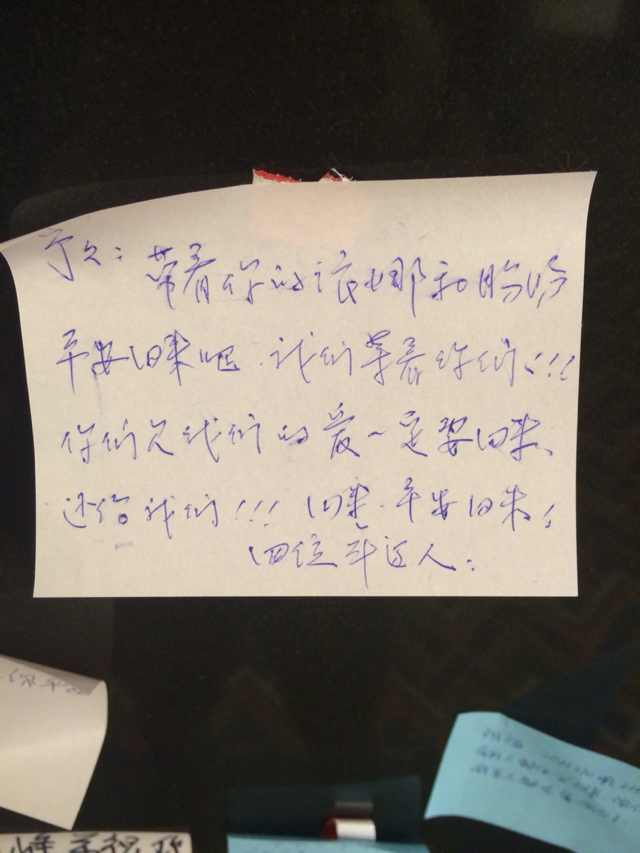 带着你的和盼盼
平安回来吧.我们等着你们!!!
你们欠我们的爱一定要回来、
还给我们!!! 回来.平安回来!
四位年迈人: